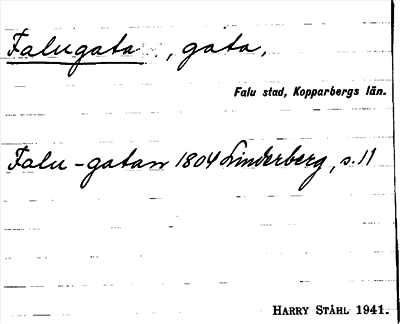 Falugata, gata,
Falu stad, Kopparbergs län.
Falu-gatan 1804 Linderberg, s. 11
HARRY STÅHL 1941.